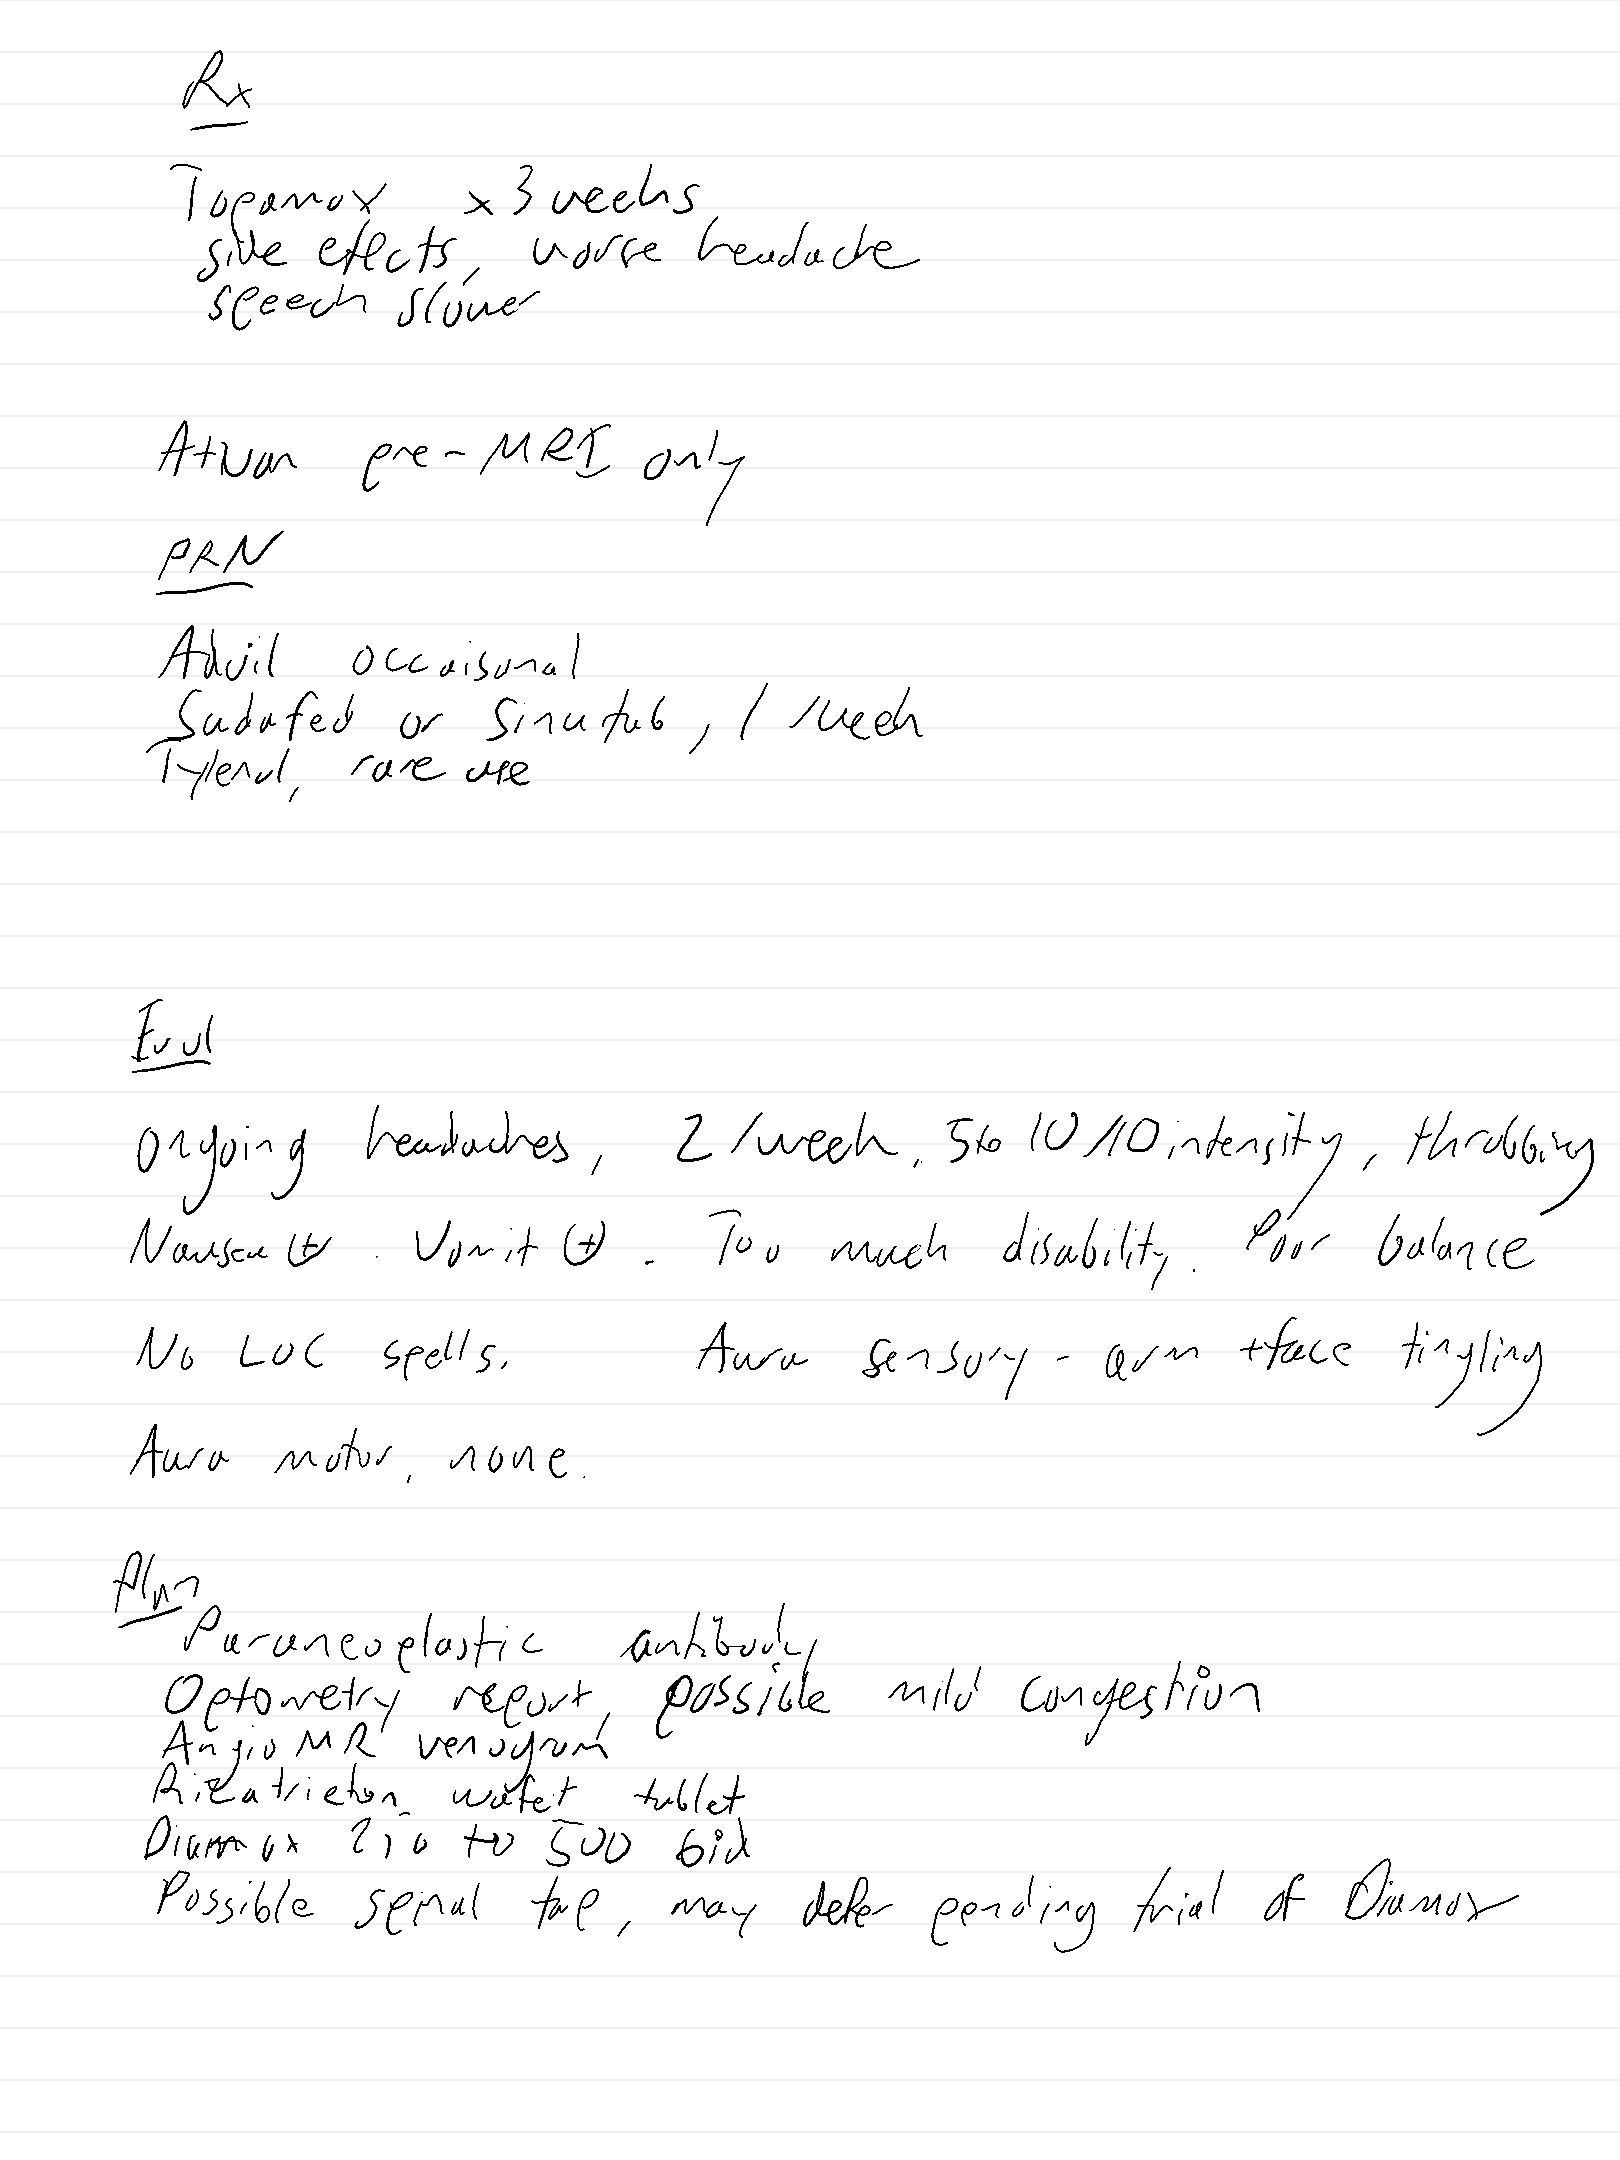 Rx
Topamax x 3 weeks
side effects, worse headache
speech slower
Ativan pre-MRI only
PRN
Advil occaisonal
Sudafed or Sinutab, 1 /week
Tylenol, rare use
Eval
Ongoing headaches, 2 /week, 5 to 10/10 intensity, throbbing
Nausea (+). Vomit (+). Too much disability. Poor balance
No LOC spells. Aura sensory - arm + face tingling
Aura motor, none.
Plan
Paraneoplastic antibody
Optometry report, possible mild congestion
Angio MR venogram
Rizatriptan wafer tablet
Diamox 250 to 500 bid
Possible spinal tap, may defer pending trial of Diamox